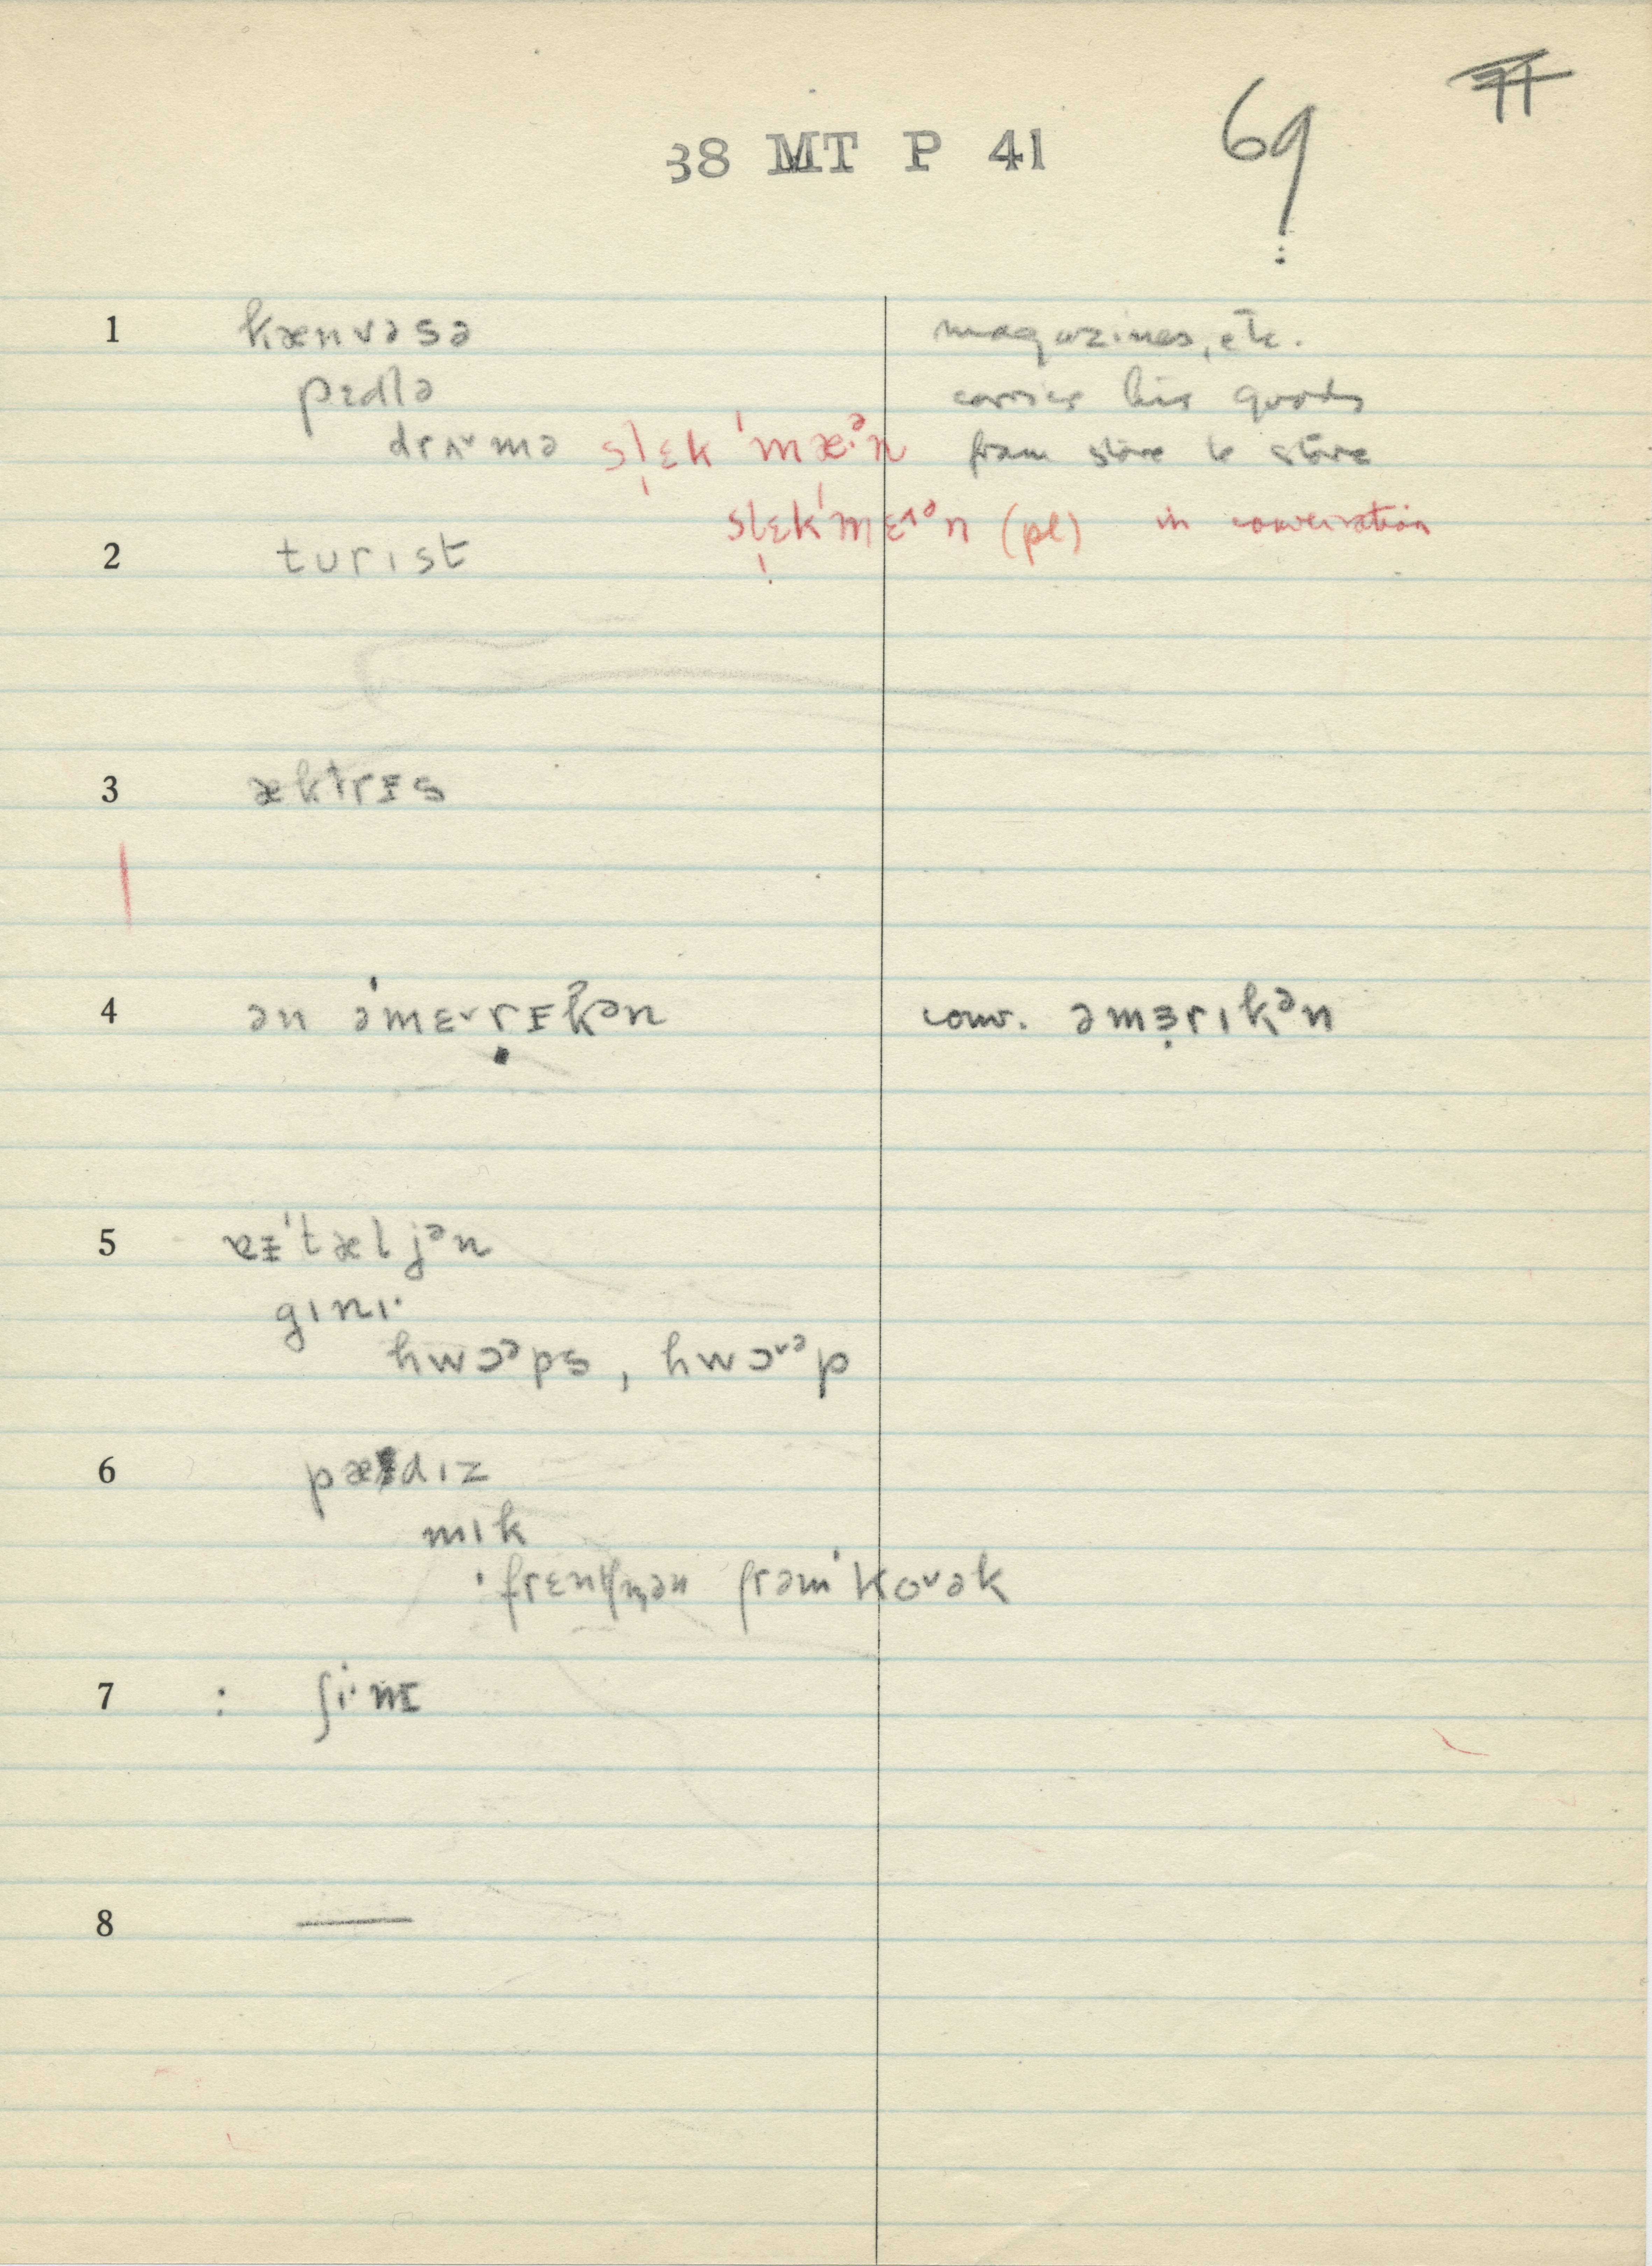 38 MT P 41 69
1 kænvəsə magazines, etc.
pɛdlə carries his goods
drʌ˅mə sl̩ɛk ˈmæ·ᵊn from store to store
sl̩ɛkˈmɛ˄ᵊn (pl) in conversation
2 turɪst
3 æktrɪs
4 ən əˈmɛ˅rɪkᵊn conv. əmɜ̣rɪkᵊn
5 ɐɪˈtæljᵊn
gɪnɪ·
hwɔᵊps, hwɔ˅ᵊp
6 pædɪz
mɪk
ˈfrɛntʃmən frəmˈko˅ək
7 : ʃi·nɪ
8 —